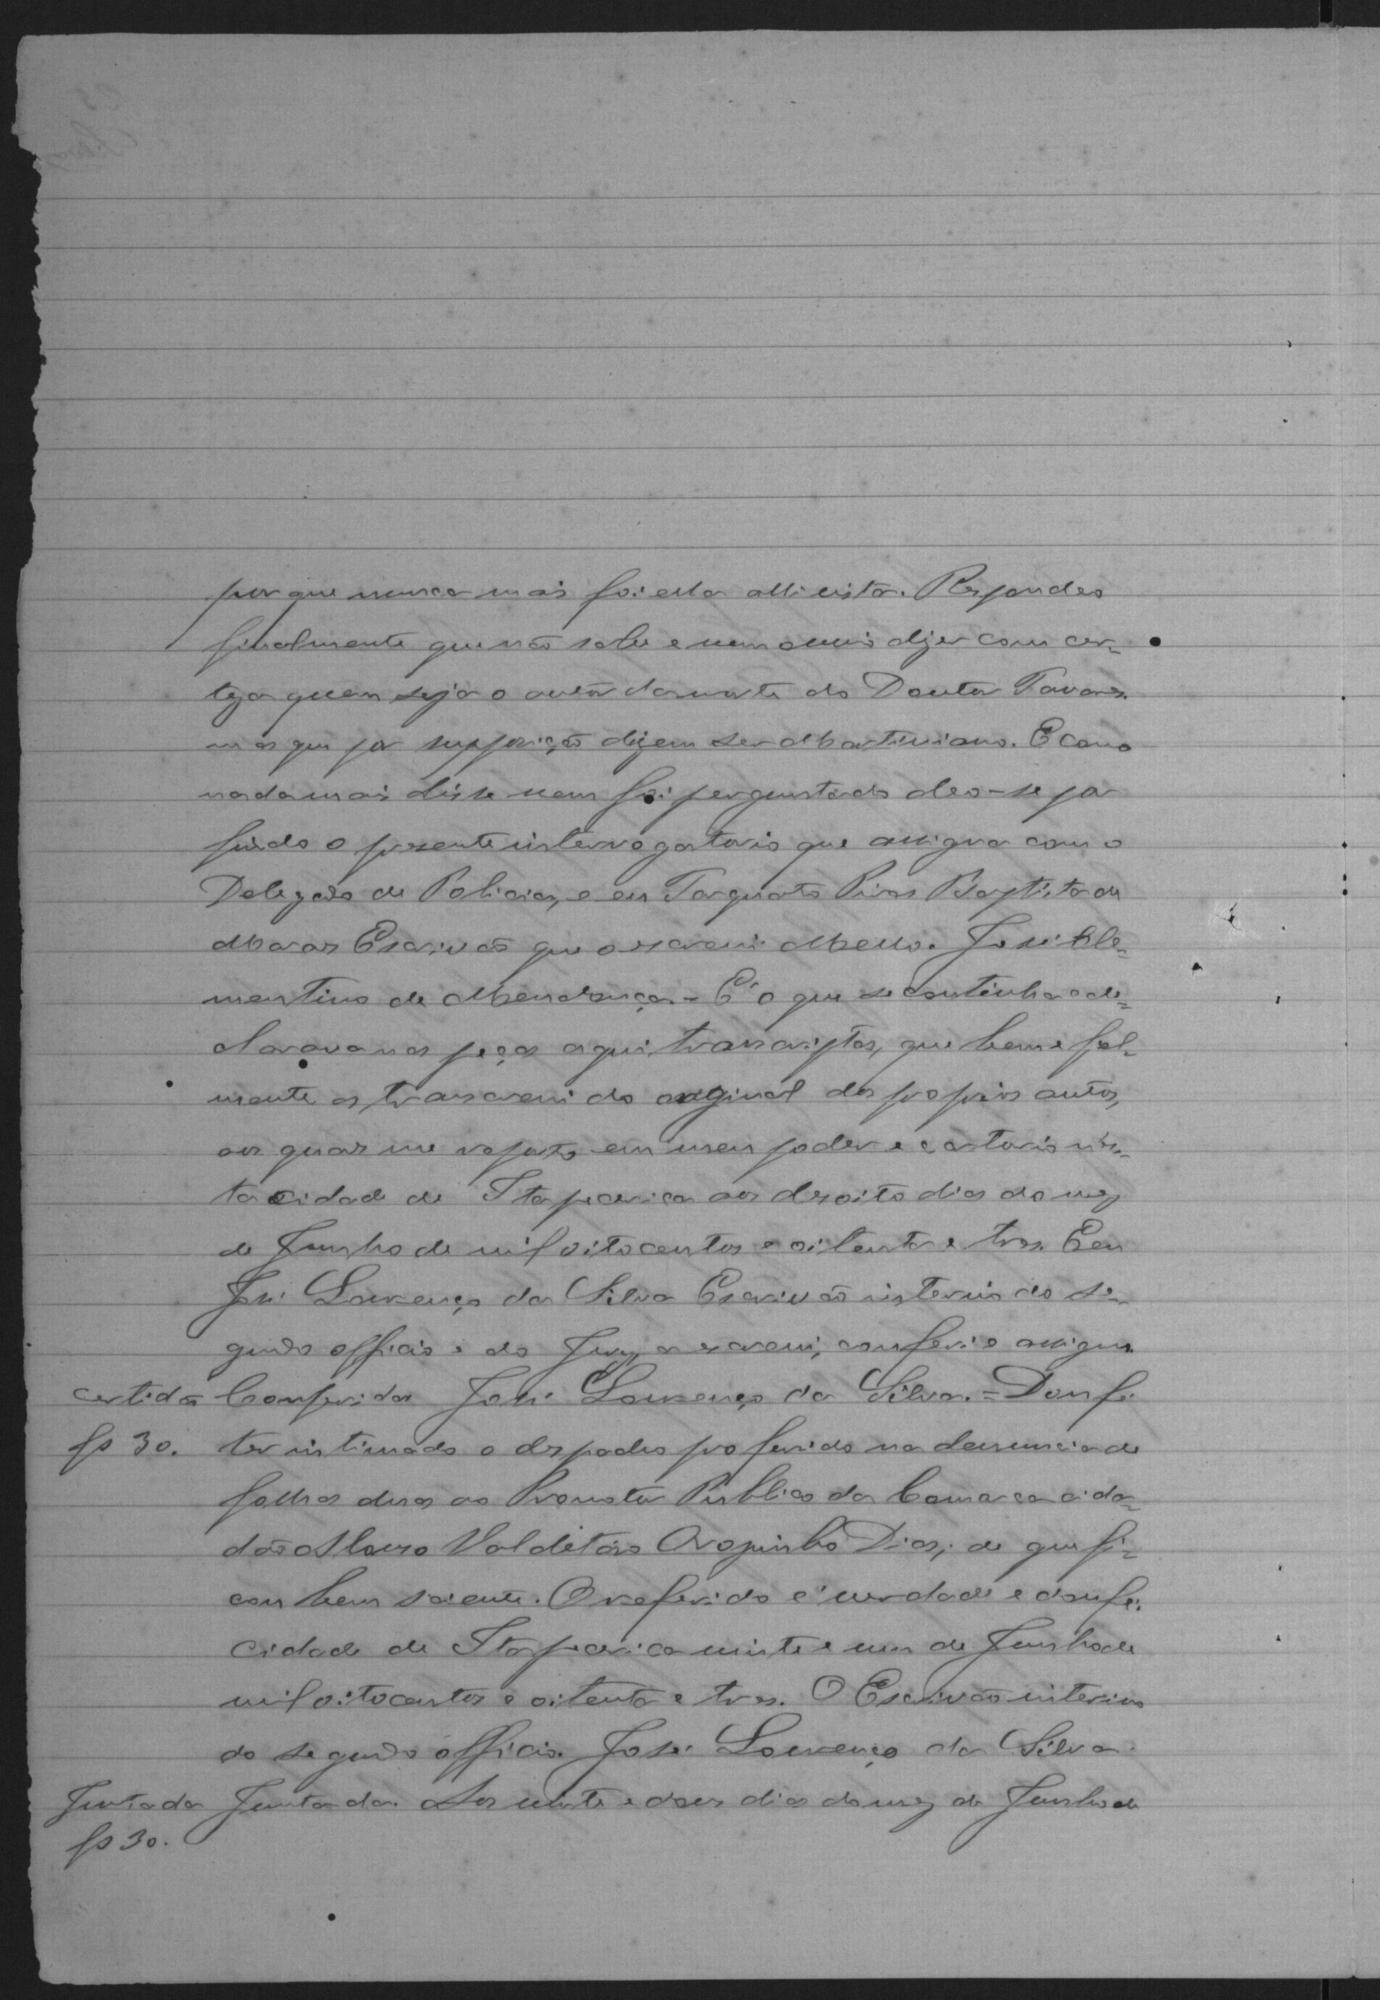 por que nunca mais foi ella alli vista. Respondeo
finalmente que não sabe e nem ouvio dizer com cer-
teza quem seja o autor da morte do Doutor Tavares.
mas que por supposição dizem ser Martiniano. E como
nada mais disse nem foi perguntado deo-se por
findo o presente interrogatorio que assigna com o
Delegado de Policia, e eu Torquato Baptista de
Escrivão que o escrevi Mello. José Cle-
mentino de Mendonça. - E' o que se continha e de-
clarava nas peças aqui transcriptas, que bem e fiel-
mente as transcrevi do original dos proprios autos,
aos quaes me reporto em meu poder e cartorio nes-
ta cidade de Itapecerica aos desoito dias do mez
de Junho de mil oitocentos e oitenta e tres. E eu
José Lourenço da Silva Escrivão interino do se-
gundo officio e do Jury a escrevi, conferi e assigno.
certidão Conferida José Lourenço da Silva. = Dou fé
fs 30. ter intimado o despacho proferido na denuncia de
folhas duas ao Promotor Publico da Comarca cida-
dão Valdetáro Dias; de que fi-
cou bem sciente. O referido é verdade e dou fé.
cidade de Itapecerica vinte e um de Junho de
mil oitocentos e oitenta e tres. O Escrivão interino
do segundo officio. José Lourenço da Silva.
Juntada Juntada. Aos vinte e dous dias do mez de Junho de
fs 30.